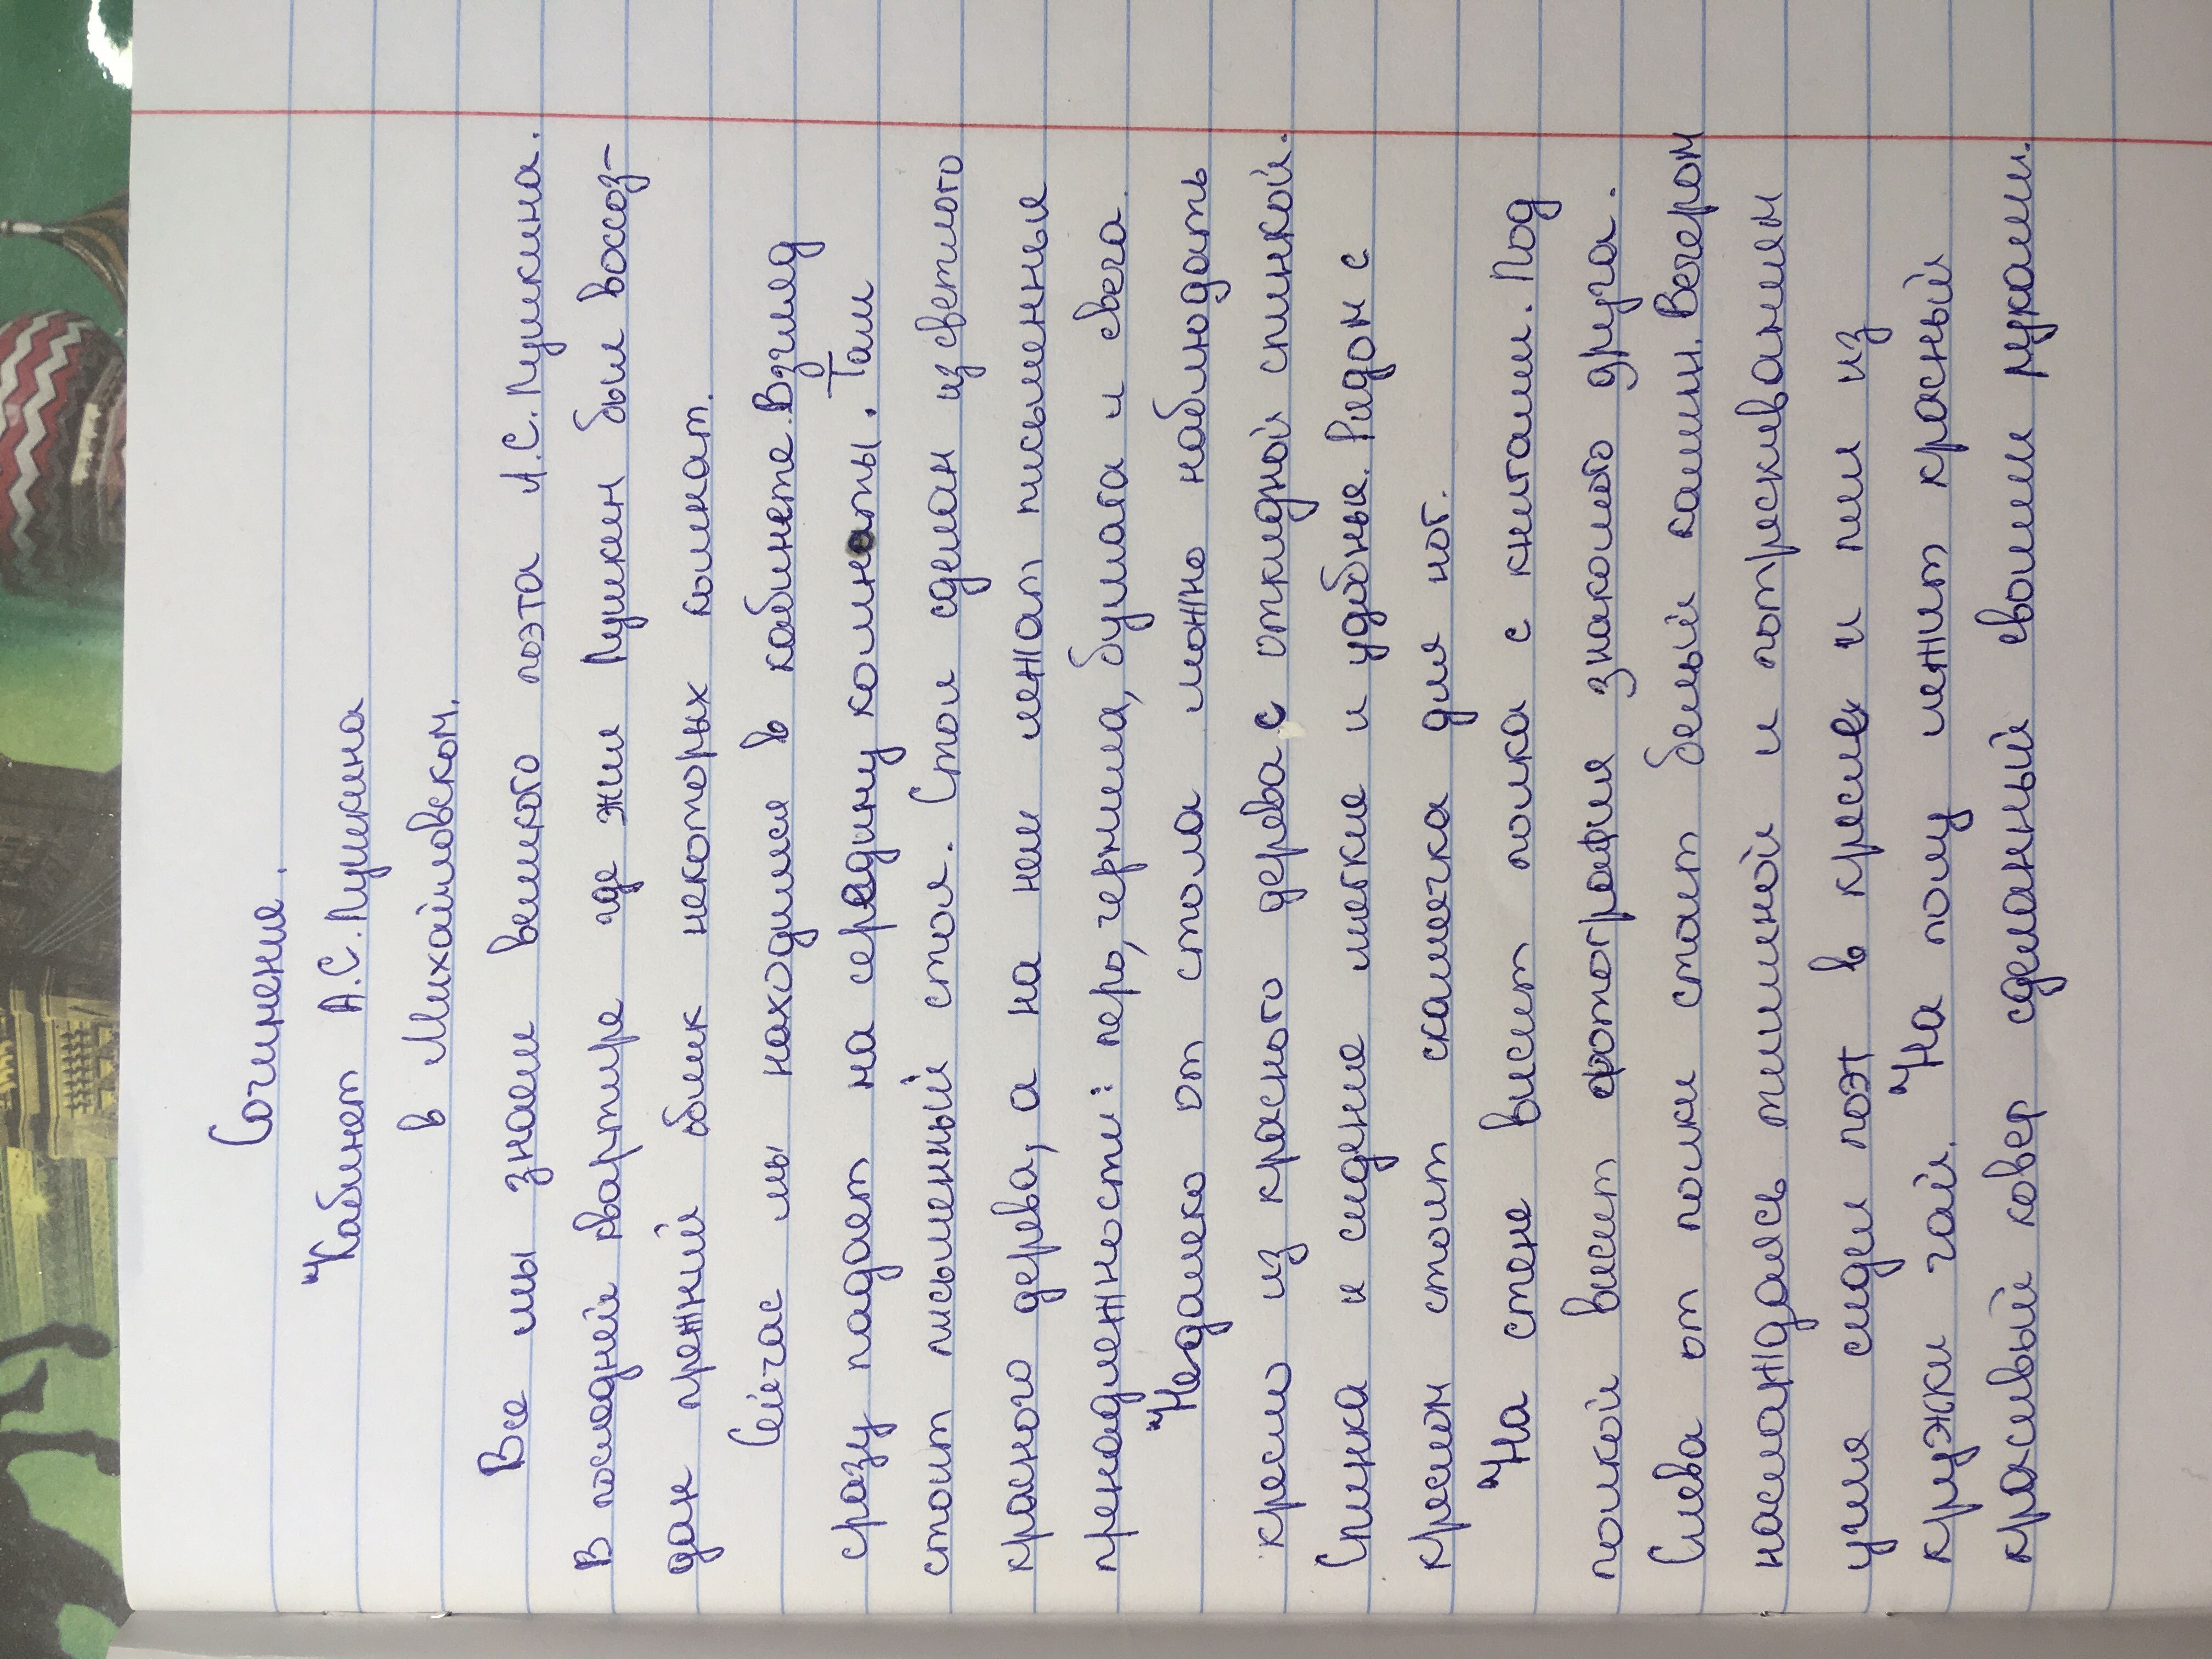 Сочинение.
"Кабинет А.С.Пушкина
в Михайловском.
Все мы знаем великого поэта А.С.Пушкина.
В последней квартире где жил Пушкин был воссоз-
дан прежний облик некоторых комнат.
Сейчас мы находимся в кабинете. Взгляд
сразу падает на середину комнаты. Там
стоит письменный стол. Стол сделан из светлого
красного дерева, а на нем лежат письменные
пренадлежности: перо, чернила, бумага и свеча.
"Недалеко от стола можно наблюдать
кресло из красного дерева с откидной спинкой.
Спинка и сидение мягкие и удобные. Рядом с
креслом стоит скамечка для ног.
"На стене висит полка с книгами. Под
полкой висит фотография знакомого друга.
Слева от полки стоит белый камин. Вечером
наслаждаясь тишиной и потрескиванием
угля сидел поэт в кресле и пил из
кружки чай. "На полу лежит красный
красивый ковер сделанный своими руками.